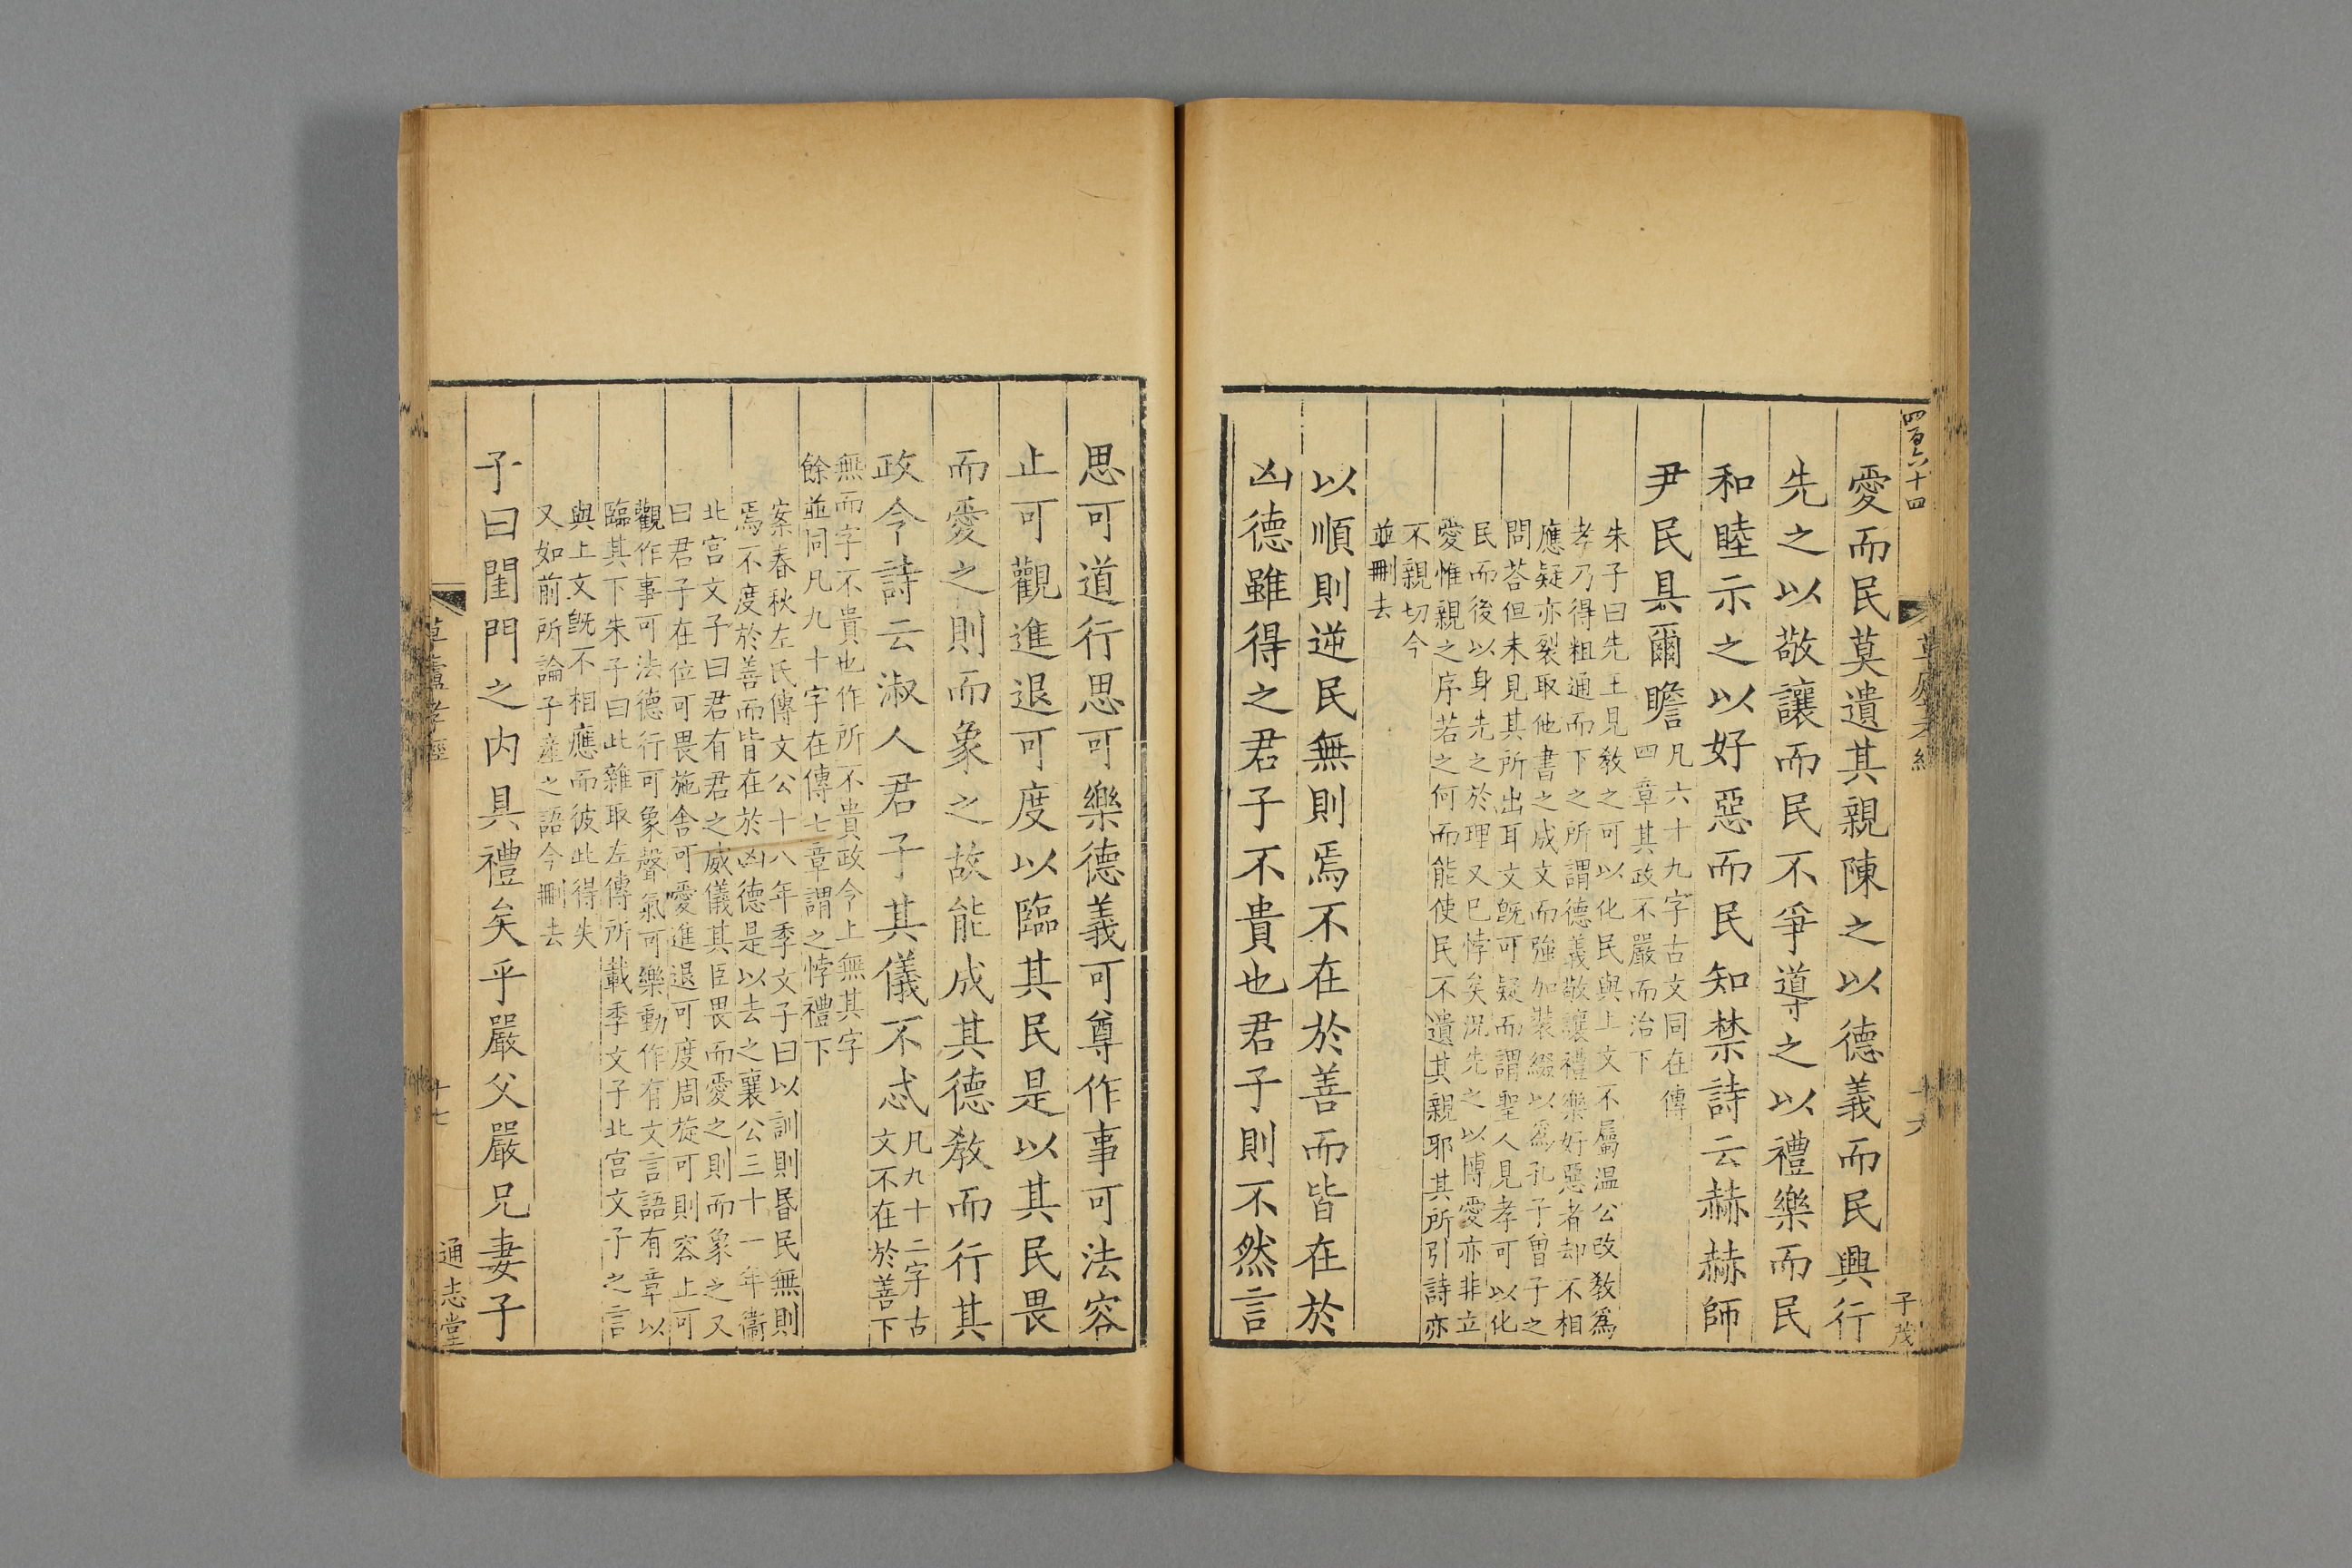 四百六十四
子茂
愛而民莫遺其親陳之以德義而民興行
先之以敬讓而民不爭導之以禮樂而民
和睦示之以好惡而民知禁詩云赫赫師
尹民具爾瞻凡六十九字古文同在傳
四章其政不嚴而治下
朱子曰先王見敎之可以化民與上文不屬温公改敎爲
孝乃得粗通而下之所謂德義敬讓禮樂好惡者却不相
應疑亦裂取他書之成文而強加裝綴以爲孔子曾子之
問荅但未見其所出耳文旣可疑而謂聖人見孝可以化
民而後以身先之於理又已悖矣況先之以博愛亦非立
愛惟親之序若之何而能使民不遺其親耶其所引詩亦
不親切今
並刪去
以順則逆民無則焉不在於善而皆在於
凶德雖得之君子不貴也君子則不然言
思可道行思可樂德義可尊作事可法容
止可觀進退可度以臨其民是以其民畏
而愛之則而象之故能成其德敎而行其
政令詩云淑人君子其儀不忒凡九十二字古
文不在於善下
無而字不貴也作所不貴政令上無其字
餘並同凡九十字在傳七章謂之悖禮下
案春秋左氏傳文公十八年季文子曰以訓則昏民無則
焉不度於善而皆在於凶德是以去之襄公三十一年衞
北宮文子曰君有君之威儀其臣畏而愛之則而象之又
曰君子在位可畏施舍可愛進退可度周旋可則容止可
觀作事可法德行可象聲氣可樂動作有文言語有章以
臨其下朱子曰此雜取左傳所載季文子北宮文子之言
與上文旣不相應而彼此得失
又如前所論子產之語今刪去
子曰閨門之內具禮矣乎嚴父嚴兄妻子
草廬孝經
十七
通志堂